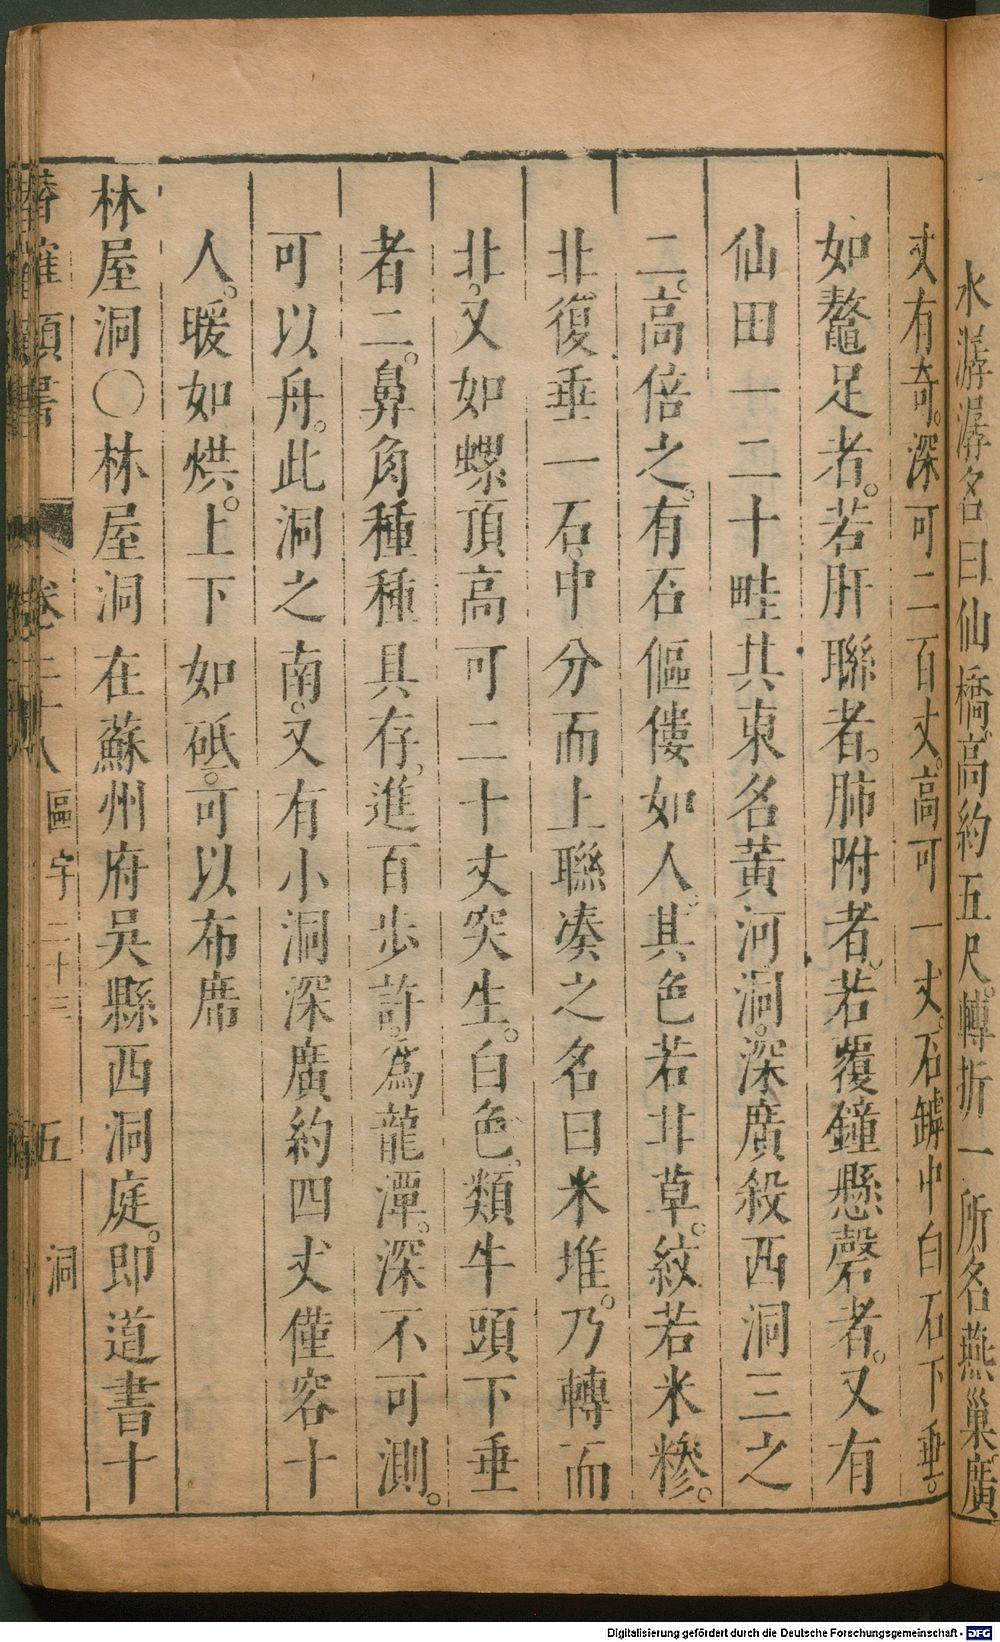 水潺潺名曰仙橋。高約五尺。轉折一所名燕巢。廣
丈有奇。深可二百丈。高可一丈。石罅中白石下垂。
如鰲足者。若肝聯者。肺附者。若覆鐘懸磬者。又有
仙田一二十畦其東名黃河洞。深廣殺西洞三之
二。高倍之。有石傴僂如人。其色若卄草。紋若米糝。
北。復垂一石。中分而上聯凑之名曰米堆。乃轉而
北。又如螺頂高可二十丈突生。白色。類牛頭下垂
者二。鼻角種種具存。進百步許。爲龍潭。深不可測。
可以舟。此洞之南。又有小洞深廣約四丈僅容十
人。暖如烘。上下如砥。可以布席
林屋洞〇林屋洞在蘇州府吳縣西洞庭。即道書十
類書 卷二十八 區字二十三 五 洞
Digitalisierung gefördert durch die Deutsche Forschungsgemeinschaft - DFG